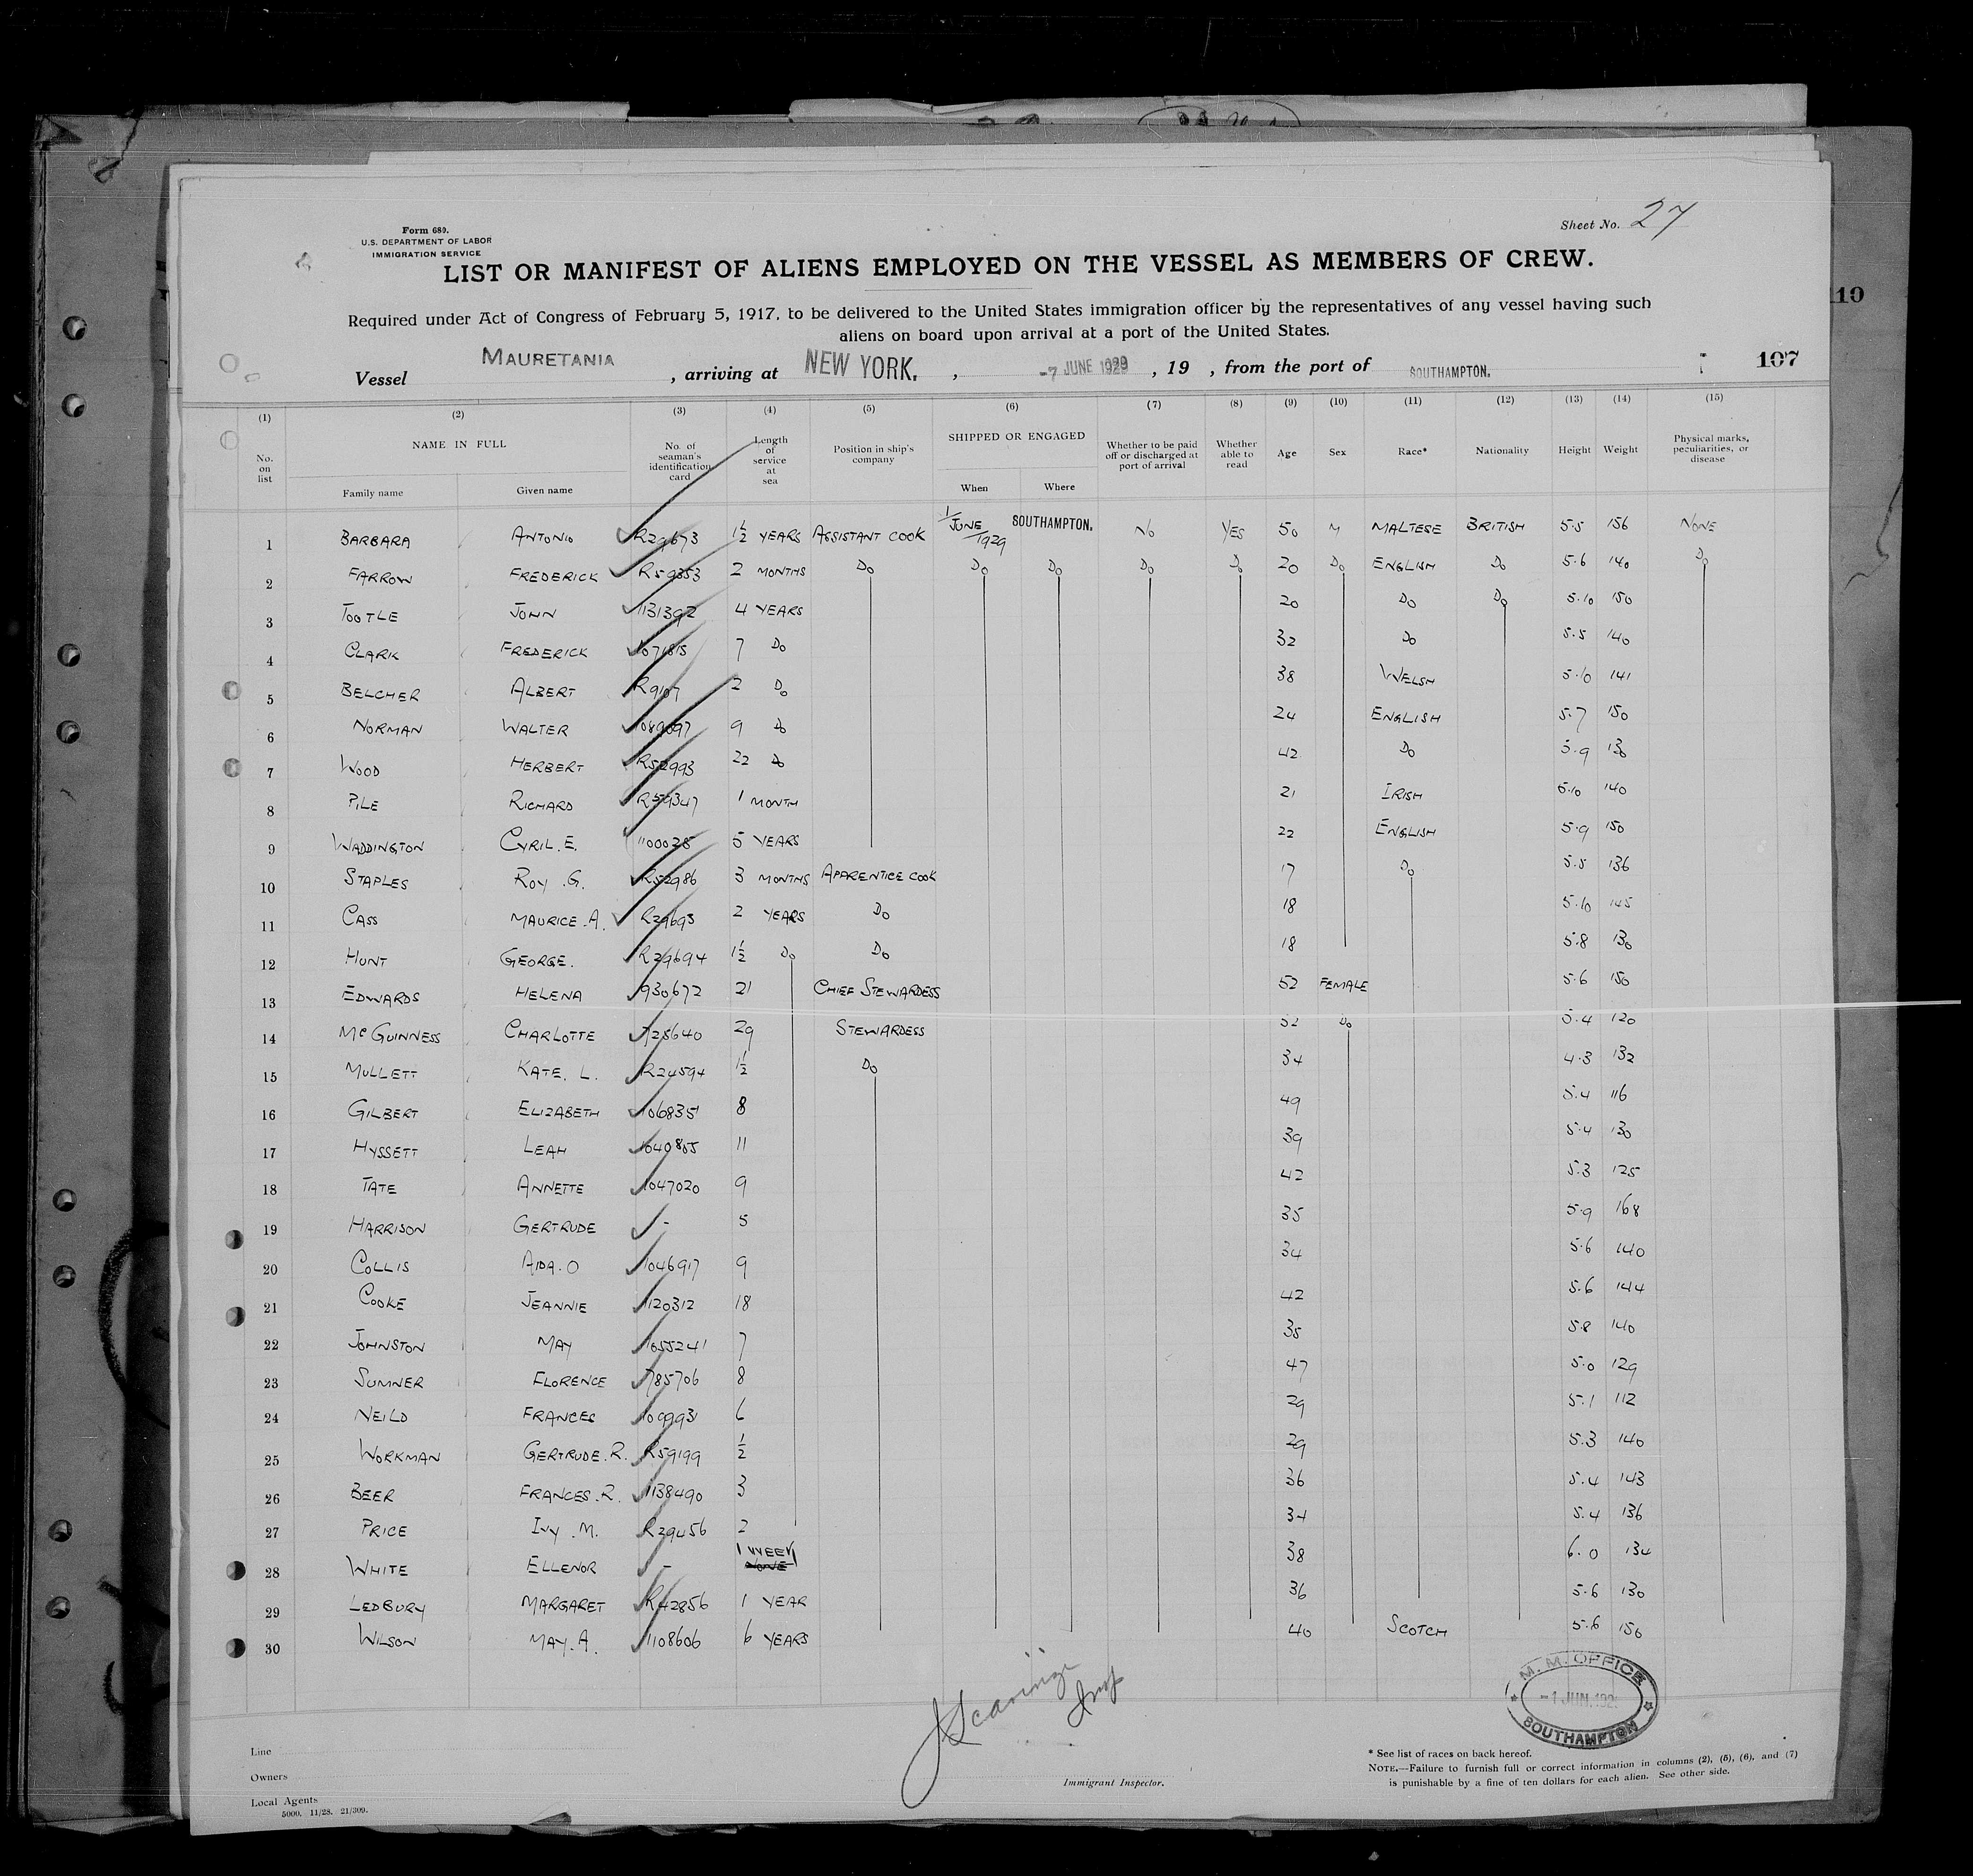 Sheet No. 27
Form 680.
U.S. DEPARTMENT OF LABOR
IMMIGRATION SERVICE
LIST OR MANIFEST OF ALIENS EMPLOYED ON THE VESSEL AS MEMBERS OF CREW.
Required under Act of Congress of February 5, 1917, to be delivered to the United States immigration officer by the representatives of any vessel having such
aliens on board upon arrival at a port of the United States.
110
Vessel MAURETANIA , arriving at NEW YORK. , -7 JUNE 1929 , 19 , from the port of SOUTHAMPTON. 107
(1) (2) (3) (4) (5) (6) (7) (8) (9) (10) (11) (12) (13) (14) (15)
No. on list NAME IN FULL Family name Given name No. of seaman's identification card Length of service at sea Position in ship's company SHIPPED OR ENGAGED When Where Whether to be paid off or discharged at port of arrival Whether able to read Age Sex Race* Nationality Height Weight Physical marks, peculiarities, or disease
1 BARBARA ANTONIO R29673 1½ YEARS ASSISTANT COOK 1/JUNE/1929 SOUTHAMPTON. NO YES 50 M MALTESE BRITISH 5.5 156 NONE
2 FARROW FREDERICK R59353 2 MONTHS DO DO DO DO DO 20 DO ENGLISH DO 5.6 140 DO
3 TOOTLE JOHN 1131392 4 YEARS 20 DO DO 5.10 150
4 CLARK FREDERICK 1071815 7 DO 32 DO 5.5 140
5 BELCHER ALBERT R9107 2 DO 38 WELSH 5.10 141
6 NORMAN WALTER 9 DO 24 ENGLISH 5.7 150
7 WOOD HERBERT R52993 22 DO 42 DO 5.9 130
8 PILE RICHARD R59347 1 MONTH 21 IRISH 5.10 140
9 WADDINGTON CYRIL.E. 1100028 5 YEARS 22 ENGLISH 5.9 150
10 STAPLES ROY .G. R52986 3 MONTHS APPRENTICE COOK 17 DO 5.5 136
11 CASS MAURICE.A. R29693 2 YEARS DO 18 5.10 145
12 HUNT GEORGE. R29694 1½ DO DO 18 5.8 130
13 EDWARDS HELENA 930672 21 CHIEF STEWARDESS 52 FEMALE 5.6 150
14 MCGUINNESS CHARLOTTE 725640 29 STEWARDESS 52 DO 5.4 120
15 MULLETT KATE. L. R24594 1½ DO 34 4.3 132
16 GILBERT ELIZABETH 1068351 8 49 5.4 116
17 HYSSETT LEAH 1040855 11 39 5.4 130
18 TATE ANNETTE 1047020 9 42 5.3 125
19 HARRISON GERTRUDE - 5 35 5.9 168
20 COLLIS AIDA.O 1046917 9 34 5.6 140
21 COOKE JEANNIE 1120312 18 42 5.6 144
22 JOHNSTON MAY 1055241 7 35 5.8 140
23 SUMNER FLORENCE 785706 8 47 5.0 129
24 NEILD FRANCES 1009931 6 29 5.1 112
25 WORKMAN GERTRUDE.R. R59199 ½ 29 5.3 140
26 BEER FRANCES.R. 1138490 3 36 5.4 143
27 PRICE IVY .M. R29456 2 34 5.4 136
28 WHITE ELLENOR - 1 WEEK NONE 38 6.0 134
29 LEDBURY MARGARET R42856 1 YEAR 36 5.6 130
30 WILSON MAY.A. 1108606 6 YEARS 40 SCOTCH 5.6 156
M.M. OFFICE
-1 JUN.192
SOUTHAMPTON
Line
Owners
Local Agents
5000. 11/28. 21/309.
Immigrant Inspector.
* See list of races on back hereof.
NOTE.—Failure to furnish full or correct information in columns (2), (5), (6), and (7)
is punishable by a fine of ten dollars for each alien. See other side.